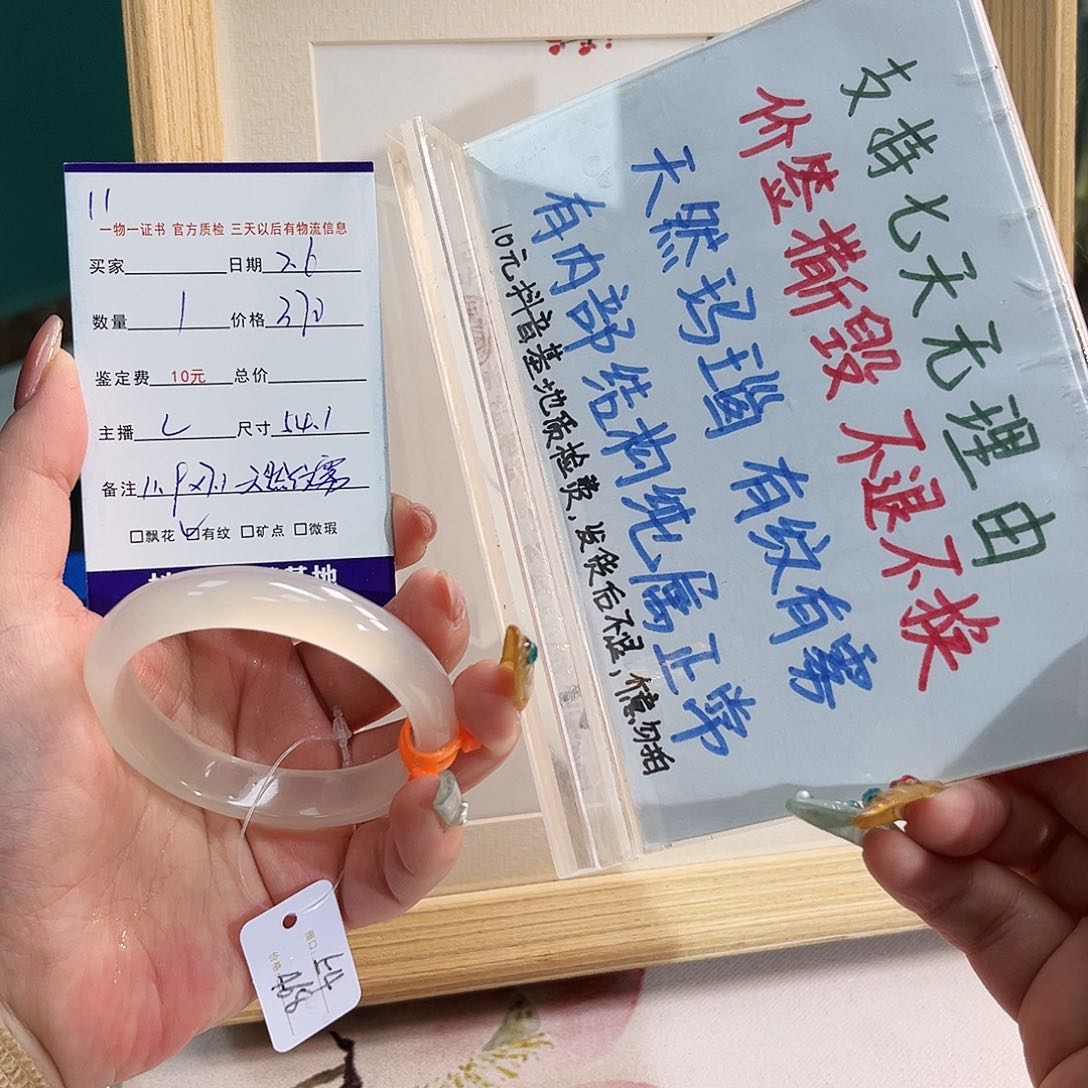 11
一物一证书 官方质检 三天以后有物流信息
买家 日期 2.6
数量 1 价格 270
鉴定费 10元 总价
主播 L 尺寸 54.1
备注 11.9x7.1
☐飘花 ☑有纹 ☐矿点 ☐微瑕
基地
支持七天无理由
价签撕毁 不退不换
天然玛瑙 有纹有雾
有内部结构纯属正常
10元抖音基地质检费,发货后不退,慎勿拍
圈口: 54
价格: 468